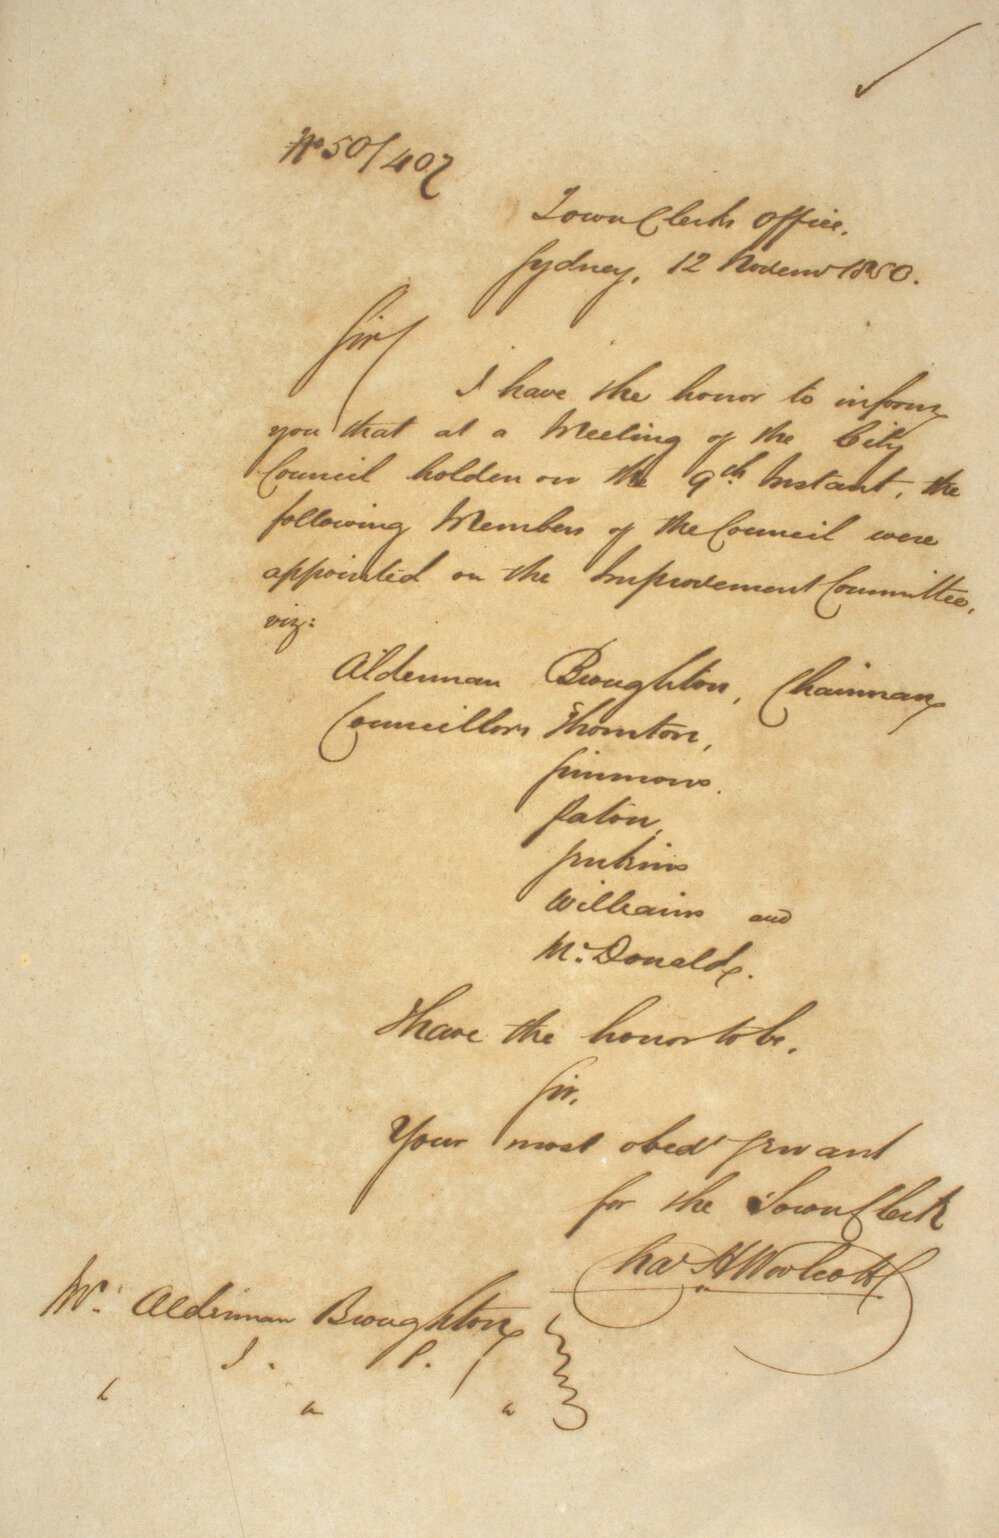 No 50/407
Town Clerks Office.
Sydney, 12 Novemr 1850.
Sir
I have the honor to inform
you that at a Meeting of the City
Council holden on the 9th Instant, the
following Members of the Council were
appointed on the Improvement Committee,
viz:
Alderman Broughton, Chairman
Councillors Thornton,
Simmons.
Paton,
Jenkins
Williams and
McDonald.
I have the honor to be,
Sir,
Your most obedt Servant
for the Town Clerk
Chas H Woolcott
Mr. Alderman Broughton
J. P.
" " "